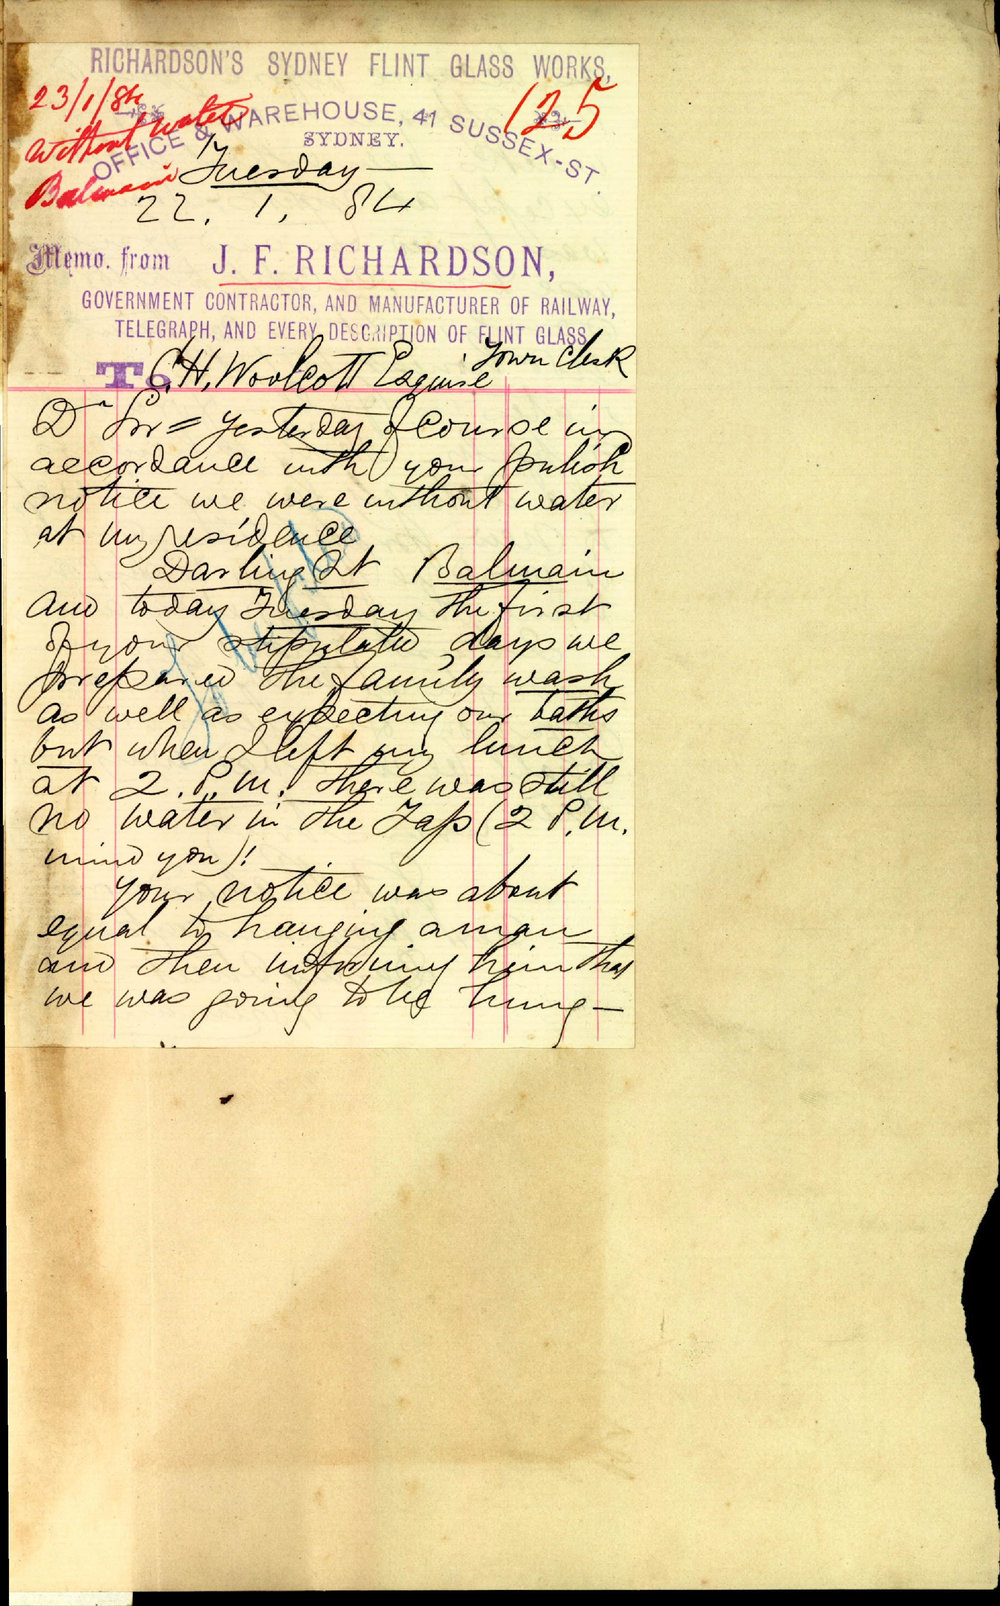 RICHARDSON'S SYDNEY FLINT GLASS WORKS,
23/1/84
125
Without water
OFFICE & WAREHOUSE, 41 SUSSEX-ST.
SYDNEY.
Balmain
Tuesday
22. 1. 84
Memo. from J. F. RICHARDSON,
GOVERNMENT CONTRACTOR, AND MANUFACTURER OF RAILWAY,
TELEGRAPH, AND EVERY DESCRIPTION OF FLINT GLASS
Town Clerk
To C H. Woolcott Esquire
Dr Sir = Yesterday of course in
accordance with your publish
notice we were without water
at my residence
Darling St Balmain
and today Tuesday the first
of your stipulated days we
prepared the family wash
as well as expecting our baths
but when I left my lunch
at 2. P.m. there was still
no water in the Taps (2 P.m.
mind you)!
Your notice was about
equal to hanging a man
and then informing him that
we was going to be hung —